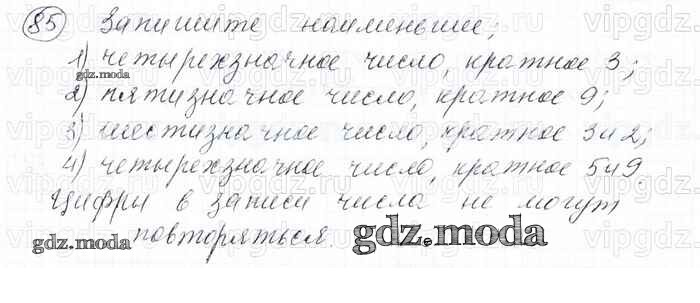 85 Запишите наименьшее:
1) четырехзначное число, кратное 3;
gdz.moda
2) пятизначное число, кратное 9;
3) шестизначное число, кратное 3 и 2;
4) четырехзначное число, кратное 5 и 9.
Цифры в записи числа не могут
повторяться.
gdz.moda
gdz.moda